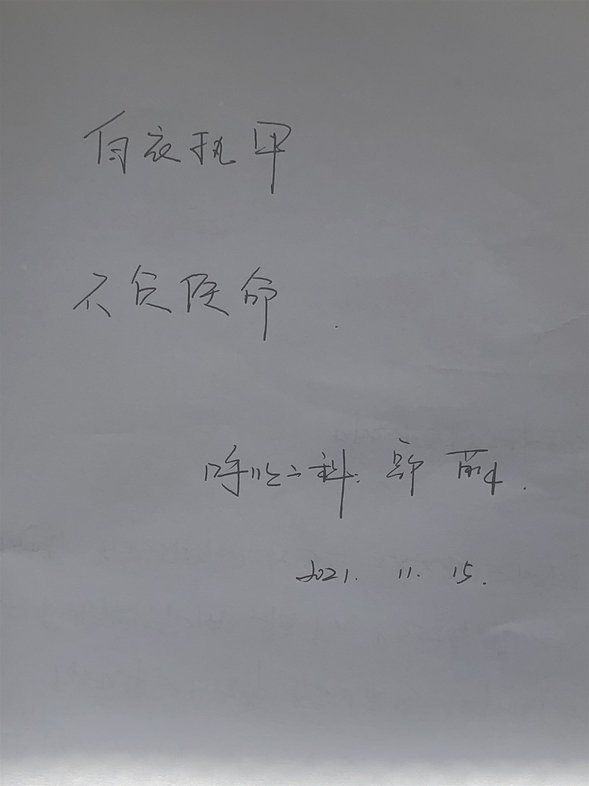 白衣执甲
不负医命
呼吸二科: 郭
2021. 11. 15.